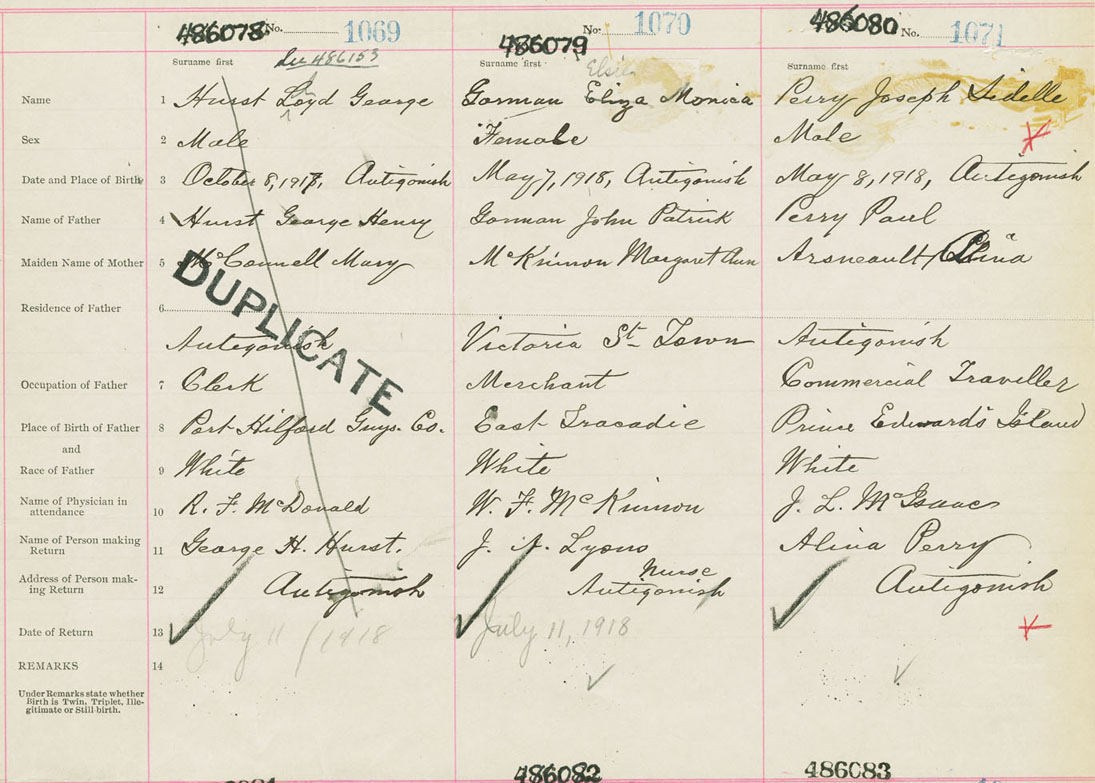 486078 No. 1069
486079 No. 1070
486080 No. 1071
See 486153
Surname first
Surname first
Surname first
Elsie
Name 1 Hurst Loyd George
Gorman Eliza Monica
Perry Joseph Lidelle
Sex 2 Male
Female
Male
Date and Place of Birth 3 October 8, 1917, Antigonish
May 7, 1918, Antigonish
May 8, 1918, Antigonish
Name of Father 4 Hurst George Henry
Gorman John Patrick
Perry Paul
Maiden Name of Mother 5 McConnell Mary
McKinnon Margaret Ann
Arsneault Alina
DUPLICATE
Residence of Father 6
Antigonish
Victoria St Town
Antigonish
Occupation of Father 7 Clerk
Merchant
Commercial Traveller
Place of Birth of Father 8 Port Hilford Guys. Co.
East Tracadie
Prince Edward's Island
and
Race of Father 9 White
White
White
Name of Physician in
attendance 10 R. F. McDonald
W. F. McKinnon
J. L. McIsaac
Name of Person making
Return 11 George H. Hurst.
J. A. Lyons
Alina Perry
Nurse
Address of Person mak-
ing Return 12 Antigonish
Antigonish
Antigonish
Date of Return 13 July 11 1918
July 11, 1918
REMARKS 14
Under Remarks state whether
Birth is Twin, Triplet, Ille-
gitimate or Still-birth.
486082
486083